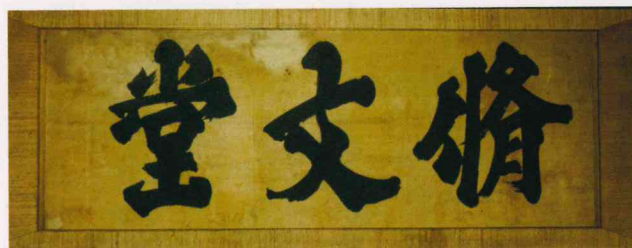 脩文堂